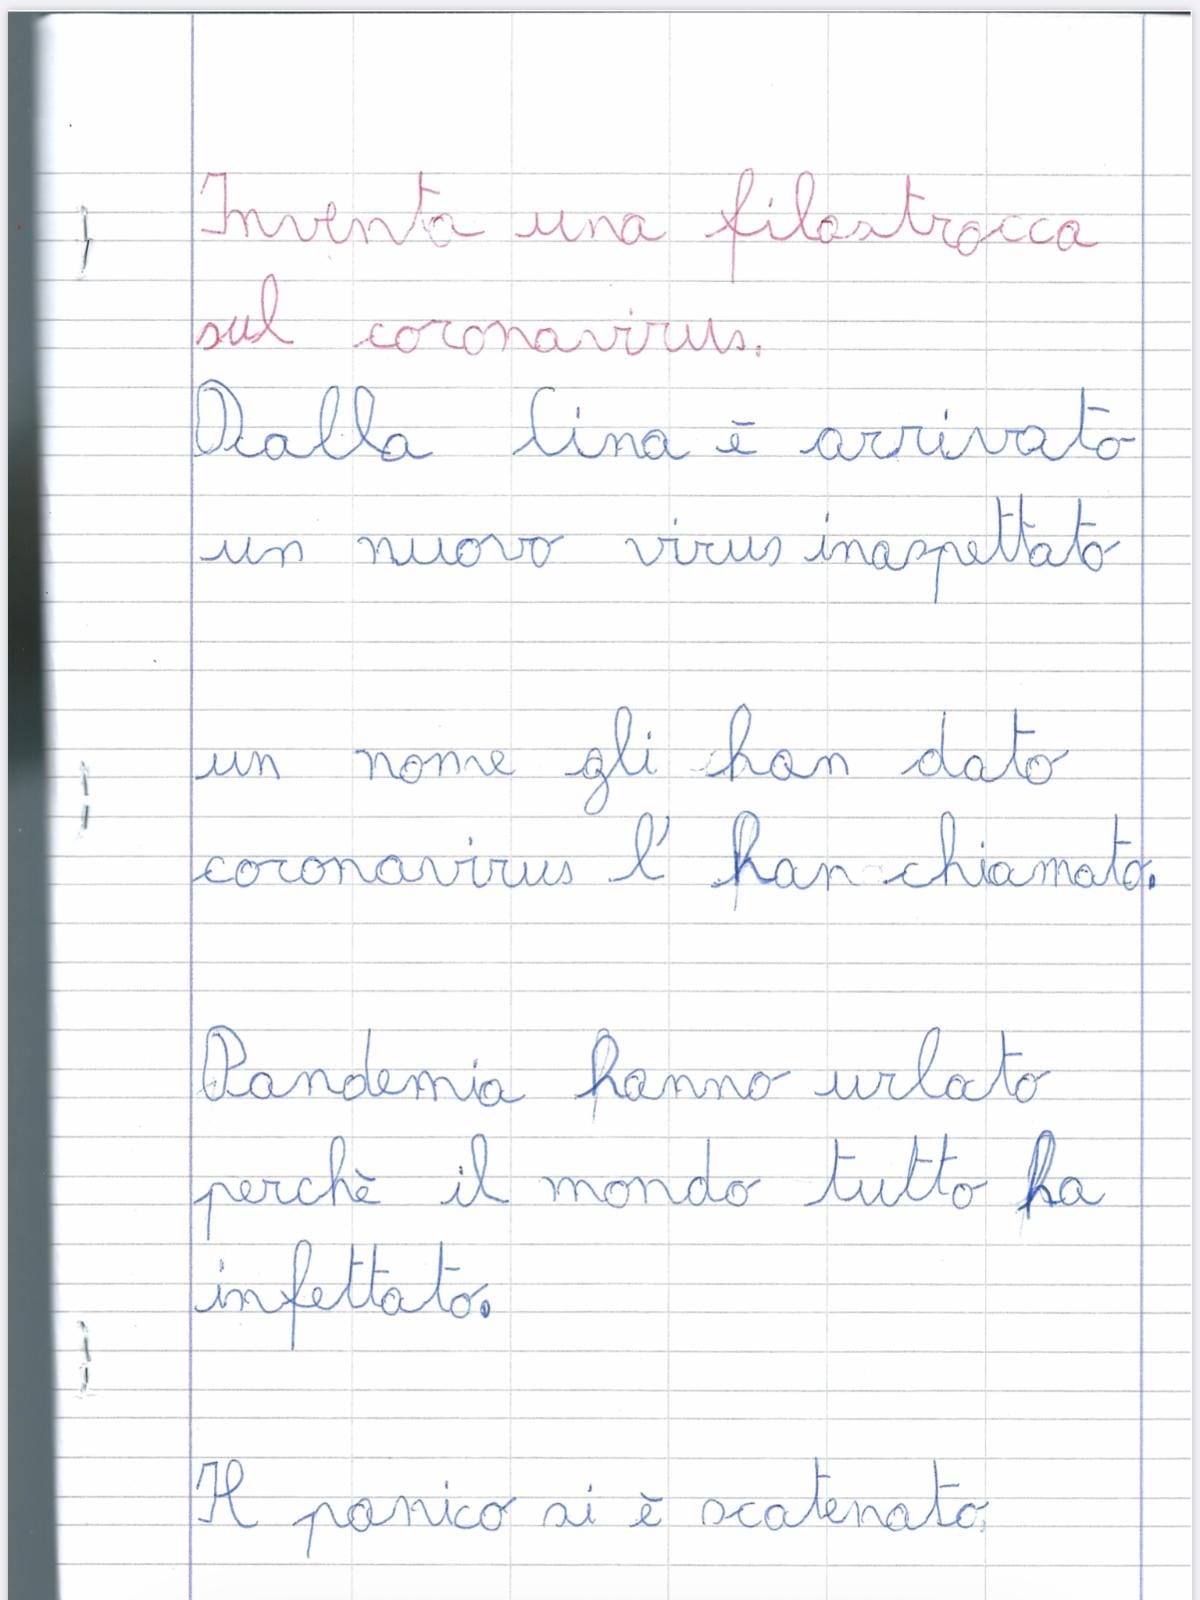 Inventa una filastrocca
sul coronavirus.
Dalla Cina è arrivato
un nuovo virus inaspettato
un nome gli han dato
coronavirus l' han chiamato.
Pandemia hanno urlato
perchè il mondo tutto ha
infettato.
Il panico si è scatenato